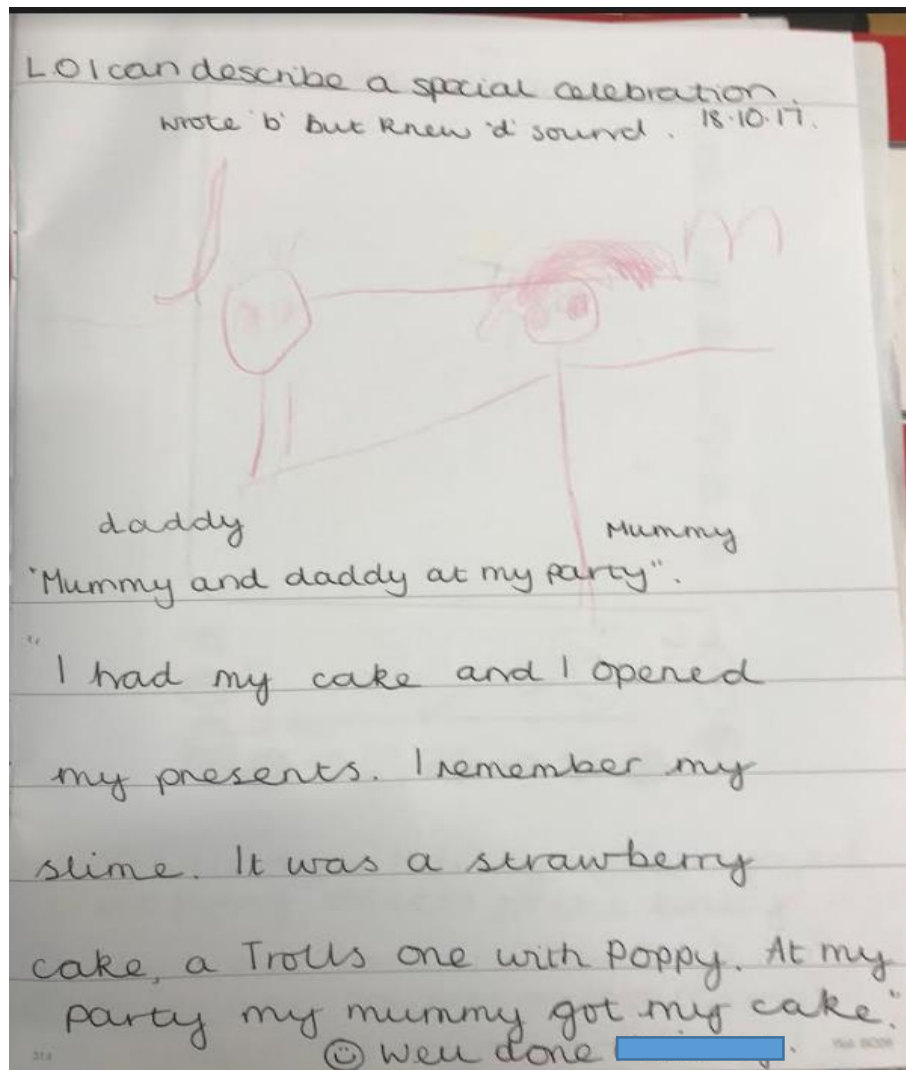 L.O I can describe a special celebration.
wrote 'b' but knew 'd' sound. 18.10.17.
m
daddy
Mummy
"Mummy and daddy at my party".
"I had my cake and I opened
my presents. I remember my
slime. It was a strawberry
cake, a Trolls one with Poppy. At my
party my mummy got my cake."
☺ Well done
314